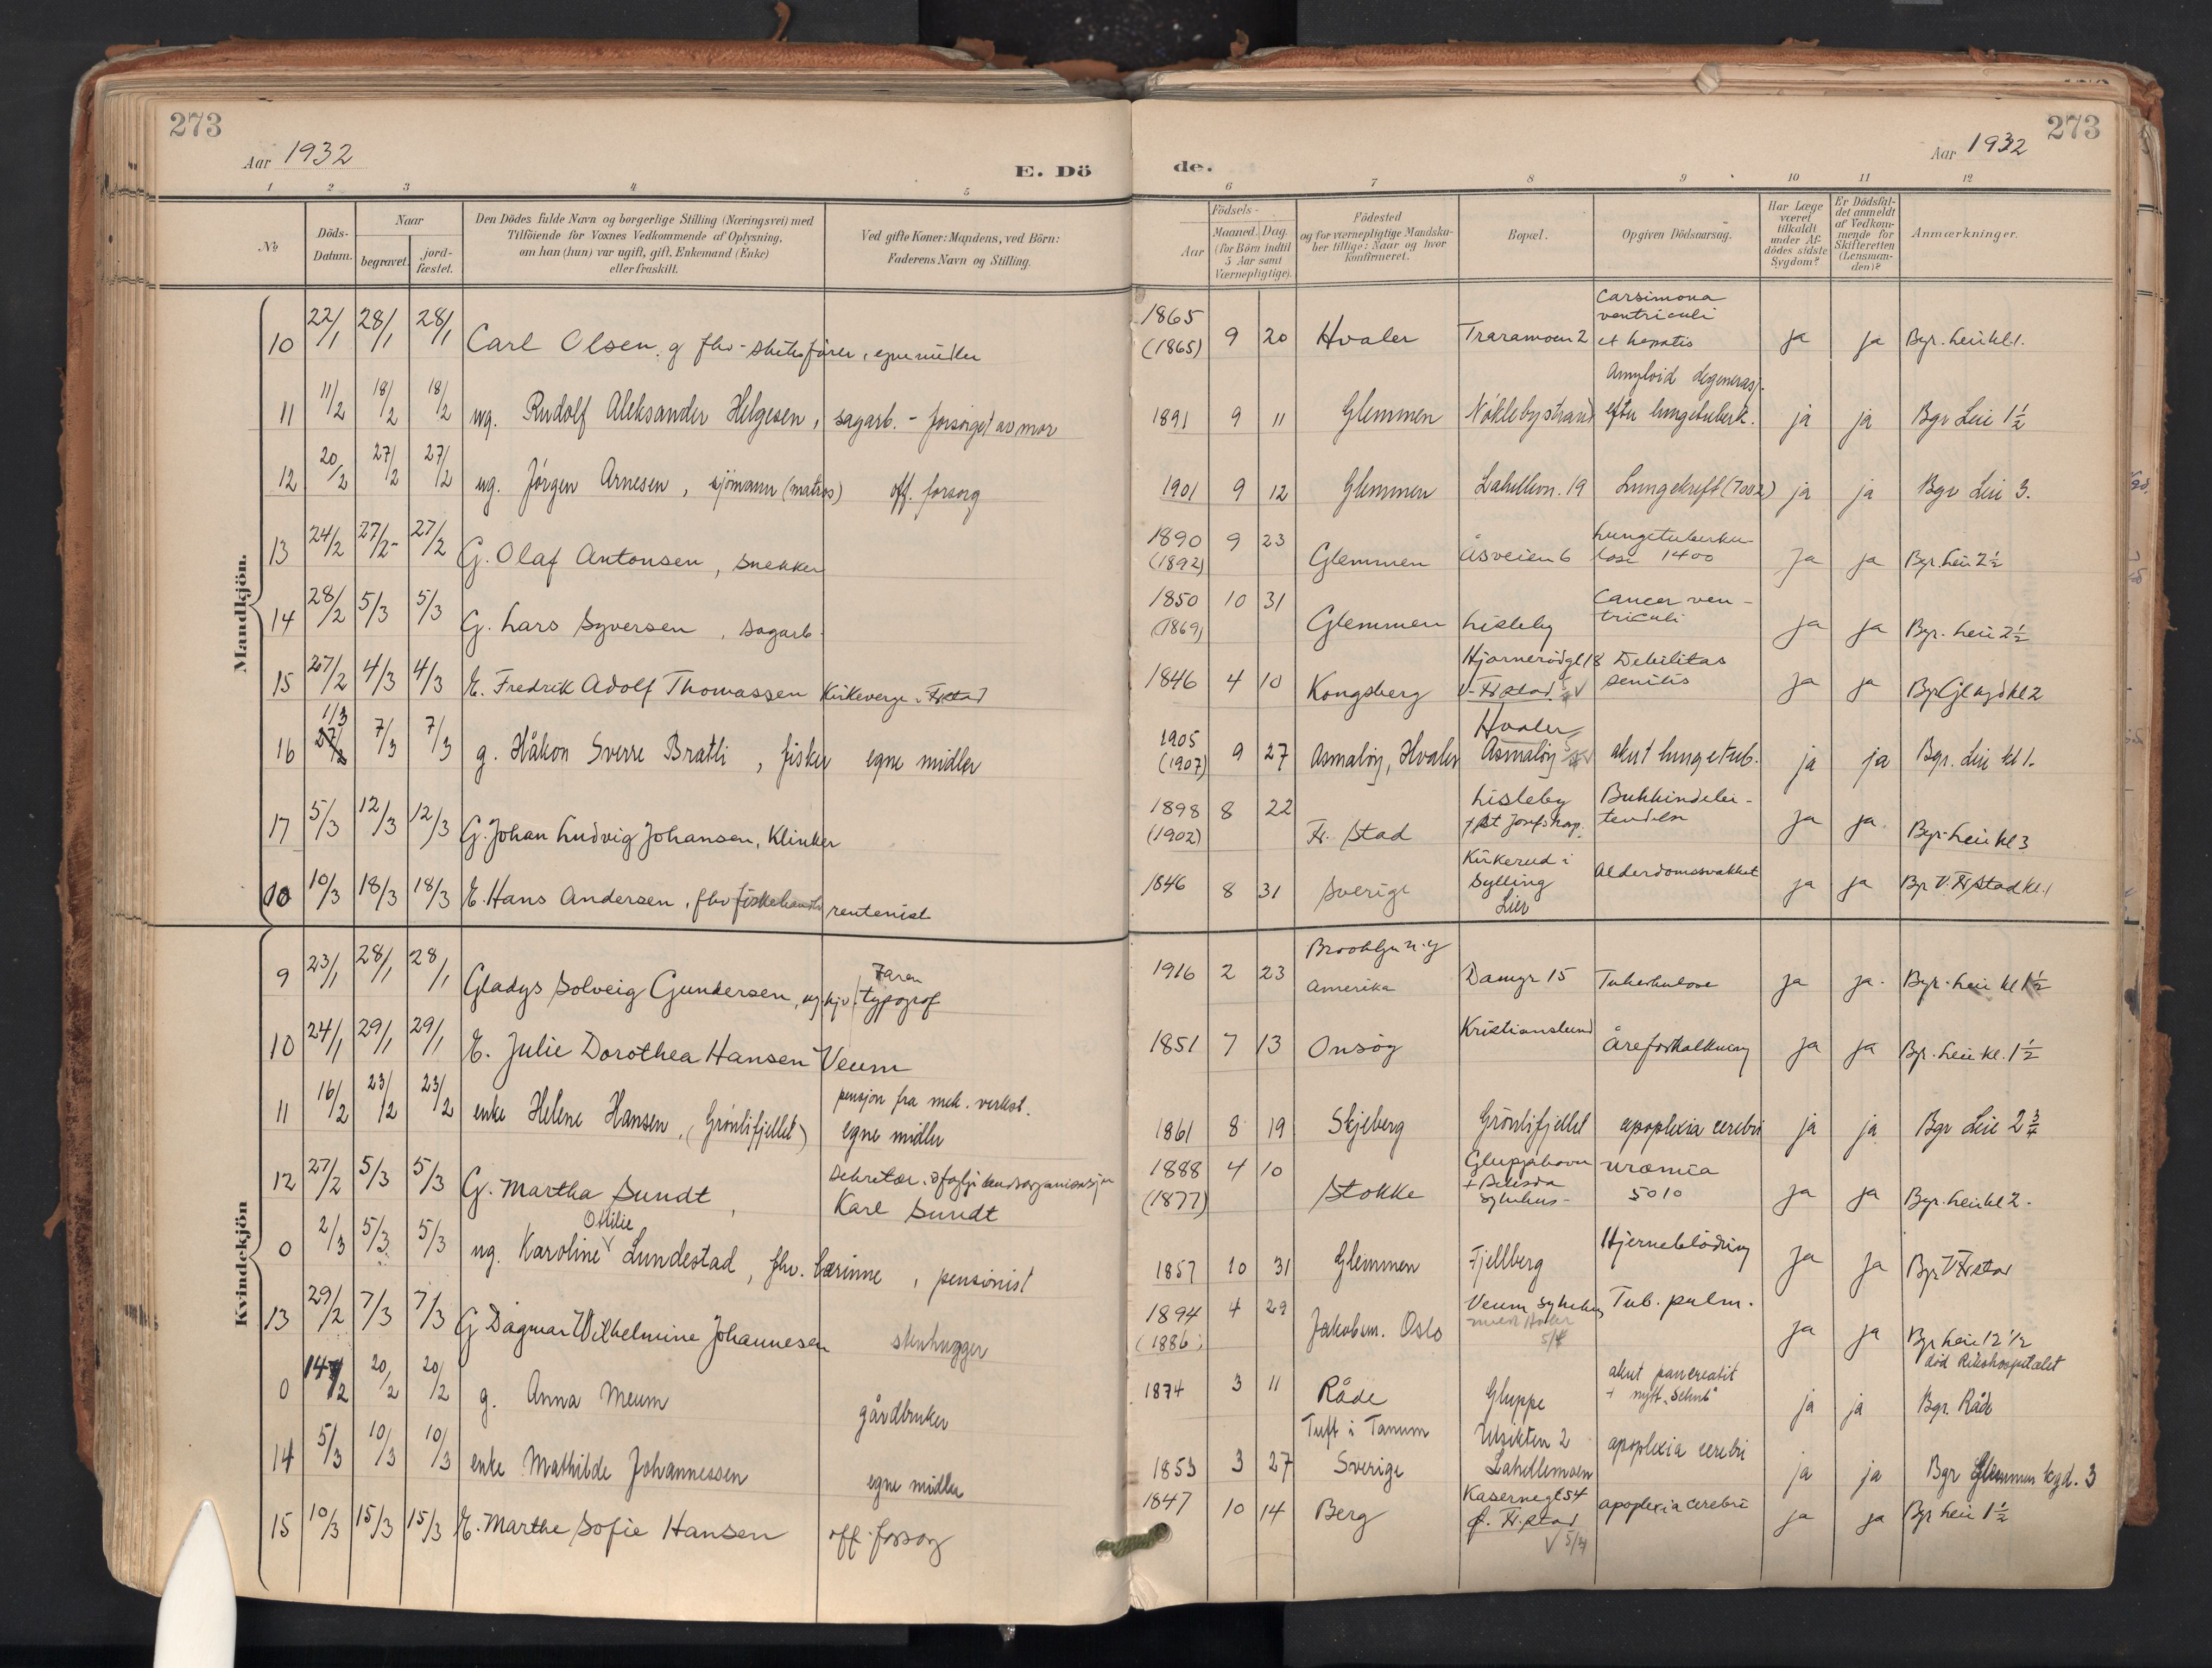 273
Aar 1932
E. Dö
de.
Aar 1932
273
1 2 3 4 5 6 7 8 9 10 11 12
No
Döds-Datum.
Naar
begravet.
jord-fæstet.
Den Dödes fulde Navn og borgerlige Stilling (Næringsvei) med
Tilföiende for Voxnes Vedkommende af Oplysning,
om han (hun) var ugift, gift, Enkemand (Enke)
eller fraskilt.
Ved gifte Koner: Mandens, ved Börn:
Faderens Navn og Stilling.
Födsels-
Aar
Maaned. Dag.
(for Börn indtil
5 Aar samt
Værnepligtige).
Födested
og for værnepligtige Mandska-
ber tillige: Naar og hvor
konfirmeret.
Bopæl.
Opgiven Dödsaarsag.
Har Læge
været
tilkaldt
under Af-
dödes sidste
Sygdom?
Er Dödsfal-
det anmeldt
af Vedkom-
mende for
Skifteretten
(Lensman-
den)?
Anmærkninger.
Mandkjön.
10 22/1 28/1 28/1 Carl Olsen. g fhv- skibsfører, egne midler 1865 (1865) 9 20 Hvaler Traramoen 2 Carsimona ventriculi et hepatis ja ja Bgr. Leie kl 1.
11 11/2 18/2 18/2 ug. Rudolf Aleksander Helgesen, sagarb. - forsørget av mor 1891 9 11 Glemmen Nøklebystrand Amyloid degenerasj. efter lungetuberk. ja ja Bgr Leie 1 1/2
12 20/2 27/2 27/2 ug. Jørgen Arnesen, sjömann (matros) off. forsorg 1901 9 12 Glemmen Lahellem. 19 Lungekreft ja ja Bgr Leie 3.
13 24/2 27/2- 27/2 G. Olaf Antonsen, snekker 1890 (1892) 9 23 Glemmen Åsveien 6 Lungetuberkulose 1400 ja ja Bgr. Leie 2 1/2
14 28/2 5/3 5/3 G. Lars Syversen, sagarb. 1850 (1869) 10 31 Glemmen Lisleby Cancer ven-triculi ja ja Bgr. Leie 2 1/2
15 27/2 4/3 4/3 E. Fredrik Adolf Thomassen Kirkeverge i Fr.stad 1846 4 10 Kongsberg Hjørnerødgt 18 V. Fr.stad Debilitas senilis ja ja Bgr Gl. kgd kl 2
16 1/3 7/3 7/3 g. Håkon Sverre Bratli, fisker egne midler 1905 (1907) 9 27 Asmaløy, Hvaler Hvaler Asmaløy akut lungetub. ja ja Bgr. Leie kl 1.
17 5/3 12/3 12/3 G. Johan Ludvig Johansen, Klinker 1898 (1902) 8 22 Fr. stad Lisleby + St Josefs hosp. Bukhindebe-tendelse ja ja. Bgr. Leie kl 3
10 10/3 18/3 18/3 E. Hans Andersen, fhv fiskehandler rentenist 1846 8 31 Sverige Kirkerud i Sylling Lier Alderdomssvakhet ja ja Bgr V. Fr.stad kl. 1
Kvindekjön
9 23/1 28/1 28/1 Gladys Solveig Gundersen, ug. hjv. Faren typograf 1916 2 23 Brooklyn N.Y Amerika Damyr 15 Tuberkulose ja ja. Bgr. Leie kl 1 1/2
10 24/1 29/1 29/1 E. Julie Dorothea Hansen Veum 1851 7 13 Onsøy Kristianslund Åreforkalkning ja ja Bgr. Leie kl. 1 1/2
11 16/2 23/2 23/2 enke Helene Hansen, (Grönlifjellet) pensjon fra mek. verkst. egne midler 1861 8 19 Skjeberg Grönlifjellet apoplexia cerebri ja ja Bgr Leie 2 3/4
12 27/2 5/3 5/3 G. Martha Sundt, Sekretær Karl Sundt 1888 (1877) 4 10 Stokke sykehus- uræmia 5010 ja ja Bgr. Leie kl 2.
0 2/3 5/3 5/3 ug. Karoline Ottilie Lundestad, fhv. lærinne, pensionist 1857 10 31 Glemmen Fjellberg Hjerneblödning ja ja Bgr V Fr.stad
13 29/2 7/3 7/3 G Dagmar Wilhelmine Johannesen stenhugger 1894 (1886) 4 29 Jakobsm. Oslo Veum sykehus Tub. pulm. ja ja Bgr Leie 12 1/2
0 14/2 20/2 20/2 g. Anna Meum gårdbruker 1874 3 11 Råde Gluppe akut pancreatit ja ja död Rikshospitalet Bgr. Råde
14 5/3 10/3 10/3 enke Mathilde Johannessen egne midler 1853 3 27 Tuft i Tanum Sverige Utsikten 2 Lahellemoen apoplexia cerebri ja ja Bgr Glemmen kgd. 3
15 10/3 15/3 15/3 E. Marthe Sofie Hansen off. forsorg 1847 10 14 Berg Kasernegt 54 Fr.stad apoplexia cerebri ja ja Bgr Leie 1 1/2